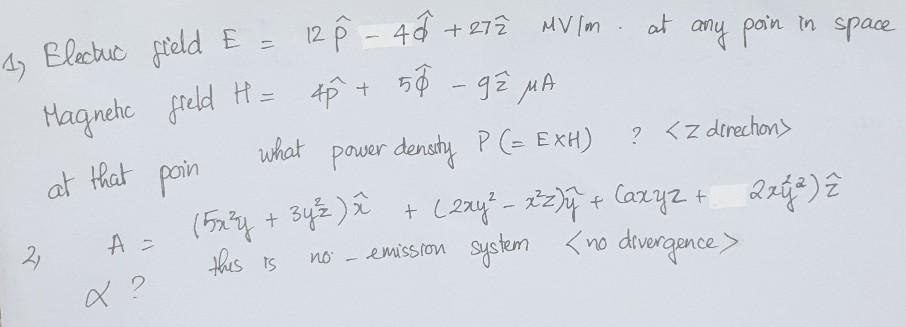 1) Electric field E = 12 ρ̂ - 4 φ̂ + 27 ẑ MV/m . at any poin in space
Magnetic field H = 4ρ̂ + 5φ̂ - 9ẑ μA
at that poin what power density P (= E×H) ? <Z direction>
2) A = (5x²y + 3y²z) x̂ + (2xy² - x²z) ŷ + (axyz + 2x²y²) ẑ
this is no - emission system <no divergence>
α ?